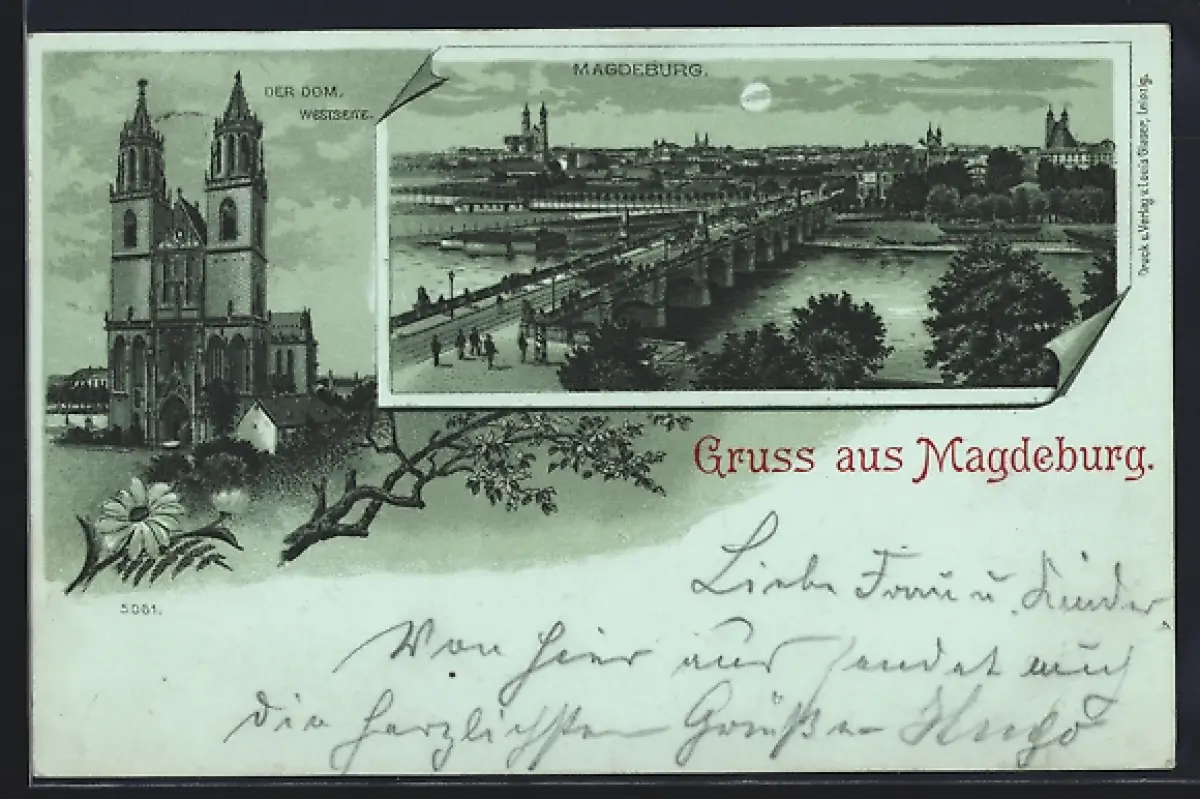 DER DOM.
WESTSEITE.
MAGDEBURG.
Druck u. Verlag v. Louis Glaser, Leipzig.
Gruss aus Magdeburg.
5081.
Liebe Frau u. Kinder
Von hier aus sendet euch
die herzlichsten Grüße Hugo